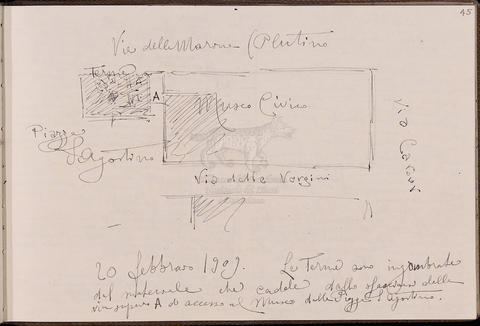 45
Via della Marina (Plutino
Terme
A
Museo Civico
Piazza
S. Agostino
Via Cavour
Via delle Vergini
20 febbraio 1909. Le Terme sono ingombrate
del materiale che cadde dalla facciata della
A d'accesso al Museo della Piazza S. Agostino.